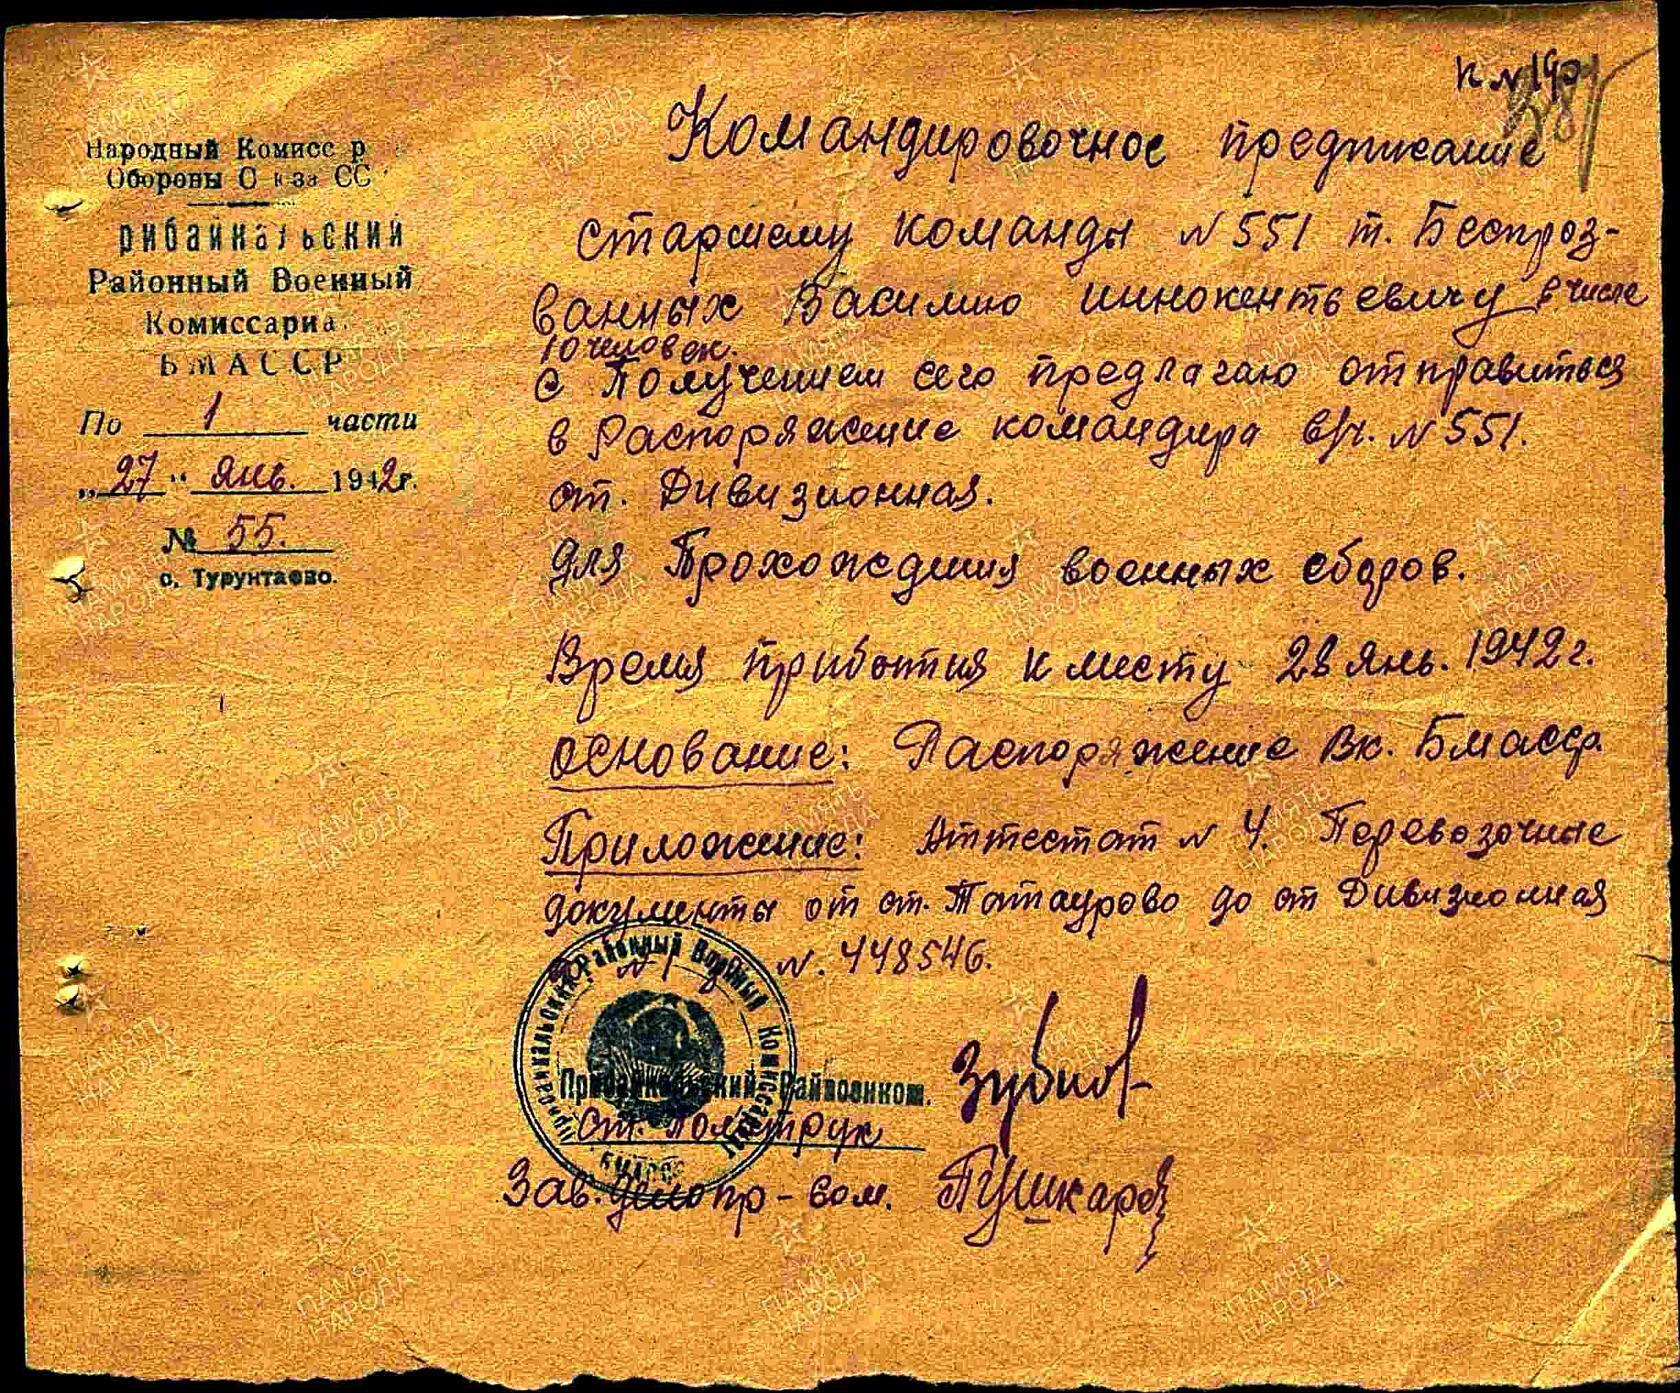 к №190
387
Народный Комисс р
Обороны С юза СС
рибайкальский
Районный Военный
Комиссариа
БМАССР
По 1 части
„27“ янв. 1942г.
№ 55.
с. Турунтаево.
Командировочное предписание
старшему команды №551 т. Беспроз-
ванных Василию Иннокентьевичу в числе
10 человек.
С Получением сего предлагаю отправиться
в Распоряжение командира в/ч. №551.
ст. Дивизионная.
для Прохождения военных сборов.
Время прибытия к месту 28 янв. 1942г.
основание: Распоряжение Вк. Бмасср
Приложение: Аттестат № 4. Перевозочные
документы от ст. Татаурово до ст Дивизионная
№. 448546.
Прибайкальский Районный Военный Комиссариат
БМАССР
Прибайкальский Райвоенком.
Ст. Политрук
Зубков
Зав. делопр-вом. Пушкарев